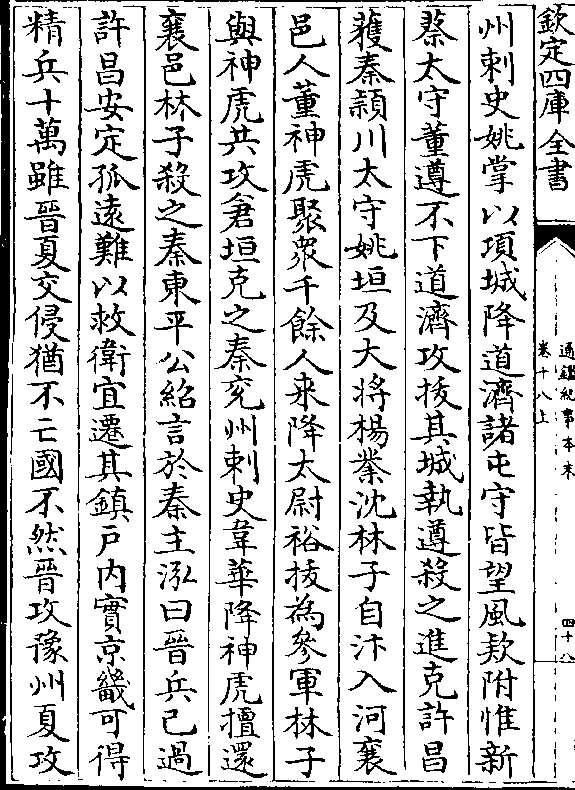 欽定四庫全書
通鑑紀事本末
卷十八上
四十八
州刺史姚掌以項城降道濟諸屯守皆望風欵附惟新
蔡太守董遵不下道濟攻拔其城執遵殺之進克許昌
蒦秦潁川太守姚垣及大將楊業沈林子自汴入河襄
邑人董神虎聚衆千餘人来降太尉裕拔為參軍林子
與神虎共攻倉垣克之秦兖州刺史韋華降神虎擅還
襄邑林子殺之秦東平公紹言於秦主泓曰晉兵已過
許昌安定孤遠難以救衛宜遷其鎮户内實京畿可得
精兵十萬雖晉夏交侵猶不亡國不然晉攻豫州夏攻